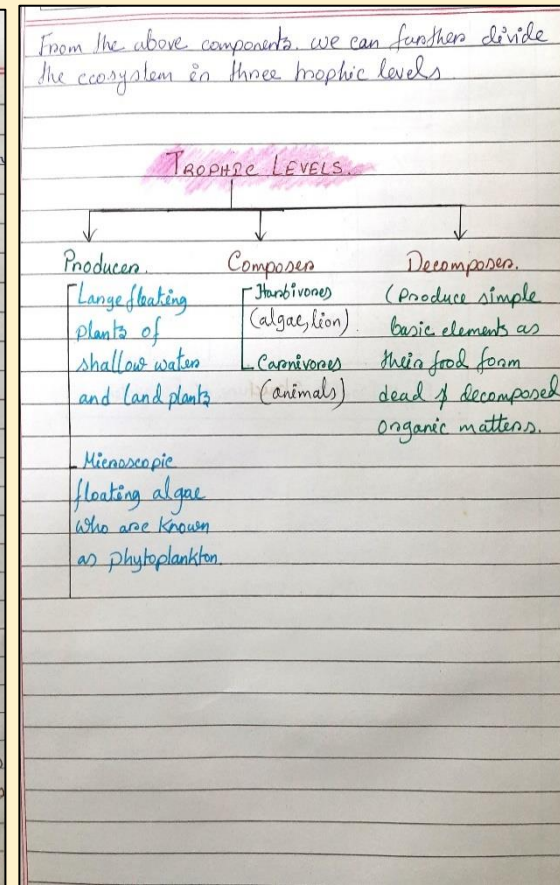 From the above components. we can further divide
the ecosystem in three trophic levels
TROPHIC LEVELS.
Producer.
Large floating
plants of
shallow waters
and land plants
Microscopic
floating algae
who are known
as phytoplankton.
Composer
Harbivores
(algae, lion)
Carnivores
(animals)
Decomposer.
(Produce simple
basic elements as
their food form
dead & decomposed
organic matters.